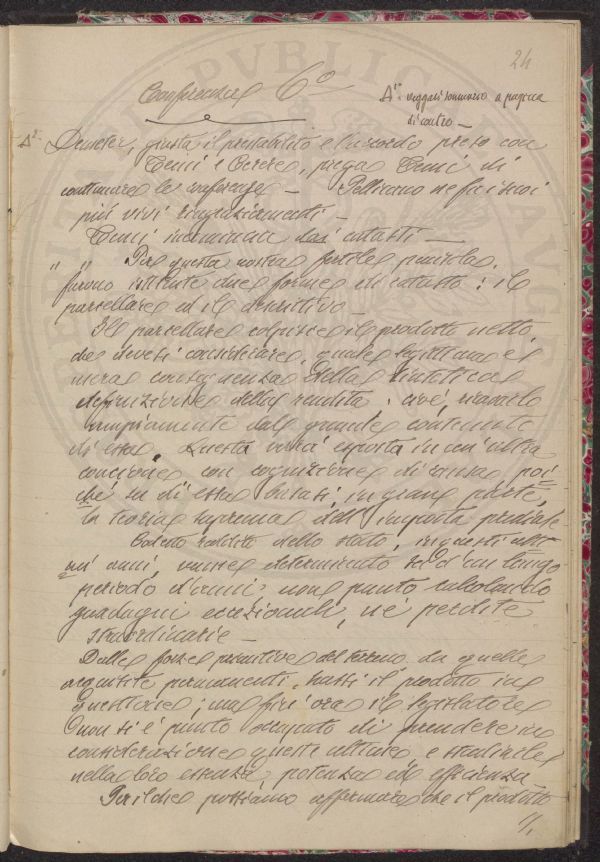 24
Conferenza 6ª
A': veggasi sommario a pagina
di contro —
A': Demeter, giusta il prestabilito e l'accordo preso con
Temi e Cerere, prega Temi di
continuare le conferenze — Pellicano ne fa i suoi
più vivi ringraziamenti —
Temi incominciare dai catasti —
" " Per questa nostra fertile penisola,
furono istituite due forme di catasto: il
parcellare ed il descrittivo —
Il parcellare colpisce il prodotto netto
che devesi considerare quale legittima e
mera conseguenza della sintetica
definizione della rendita: cioè,
ampiamente dal grande contenente
di essa. Questa verrà esposta in un'altra
concione con cognizione di causa, poi
chè su di essa basasi, in gran parte,
la teoria suprema dell'imposta prediale.
Codesto reddito dello stato, in questi ulti
mi anni, venne determinato su d'un lungo
periodo d'anni, non punto calcolando
guadagni eccezionali, nè perdite
straordinarie —
Dalle forze primitive del terreno, da quelle
acquisite permanenti, trassi il prodotto in
questione; ma fin'ora il legislatore
non si è punto occupato di prendere in
considerazione queste ultime e studiarle
nella loro essenza, potenza ed efficienza
Perilchè possiamo affermare che il prodotto
//.